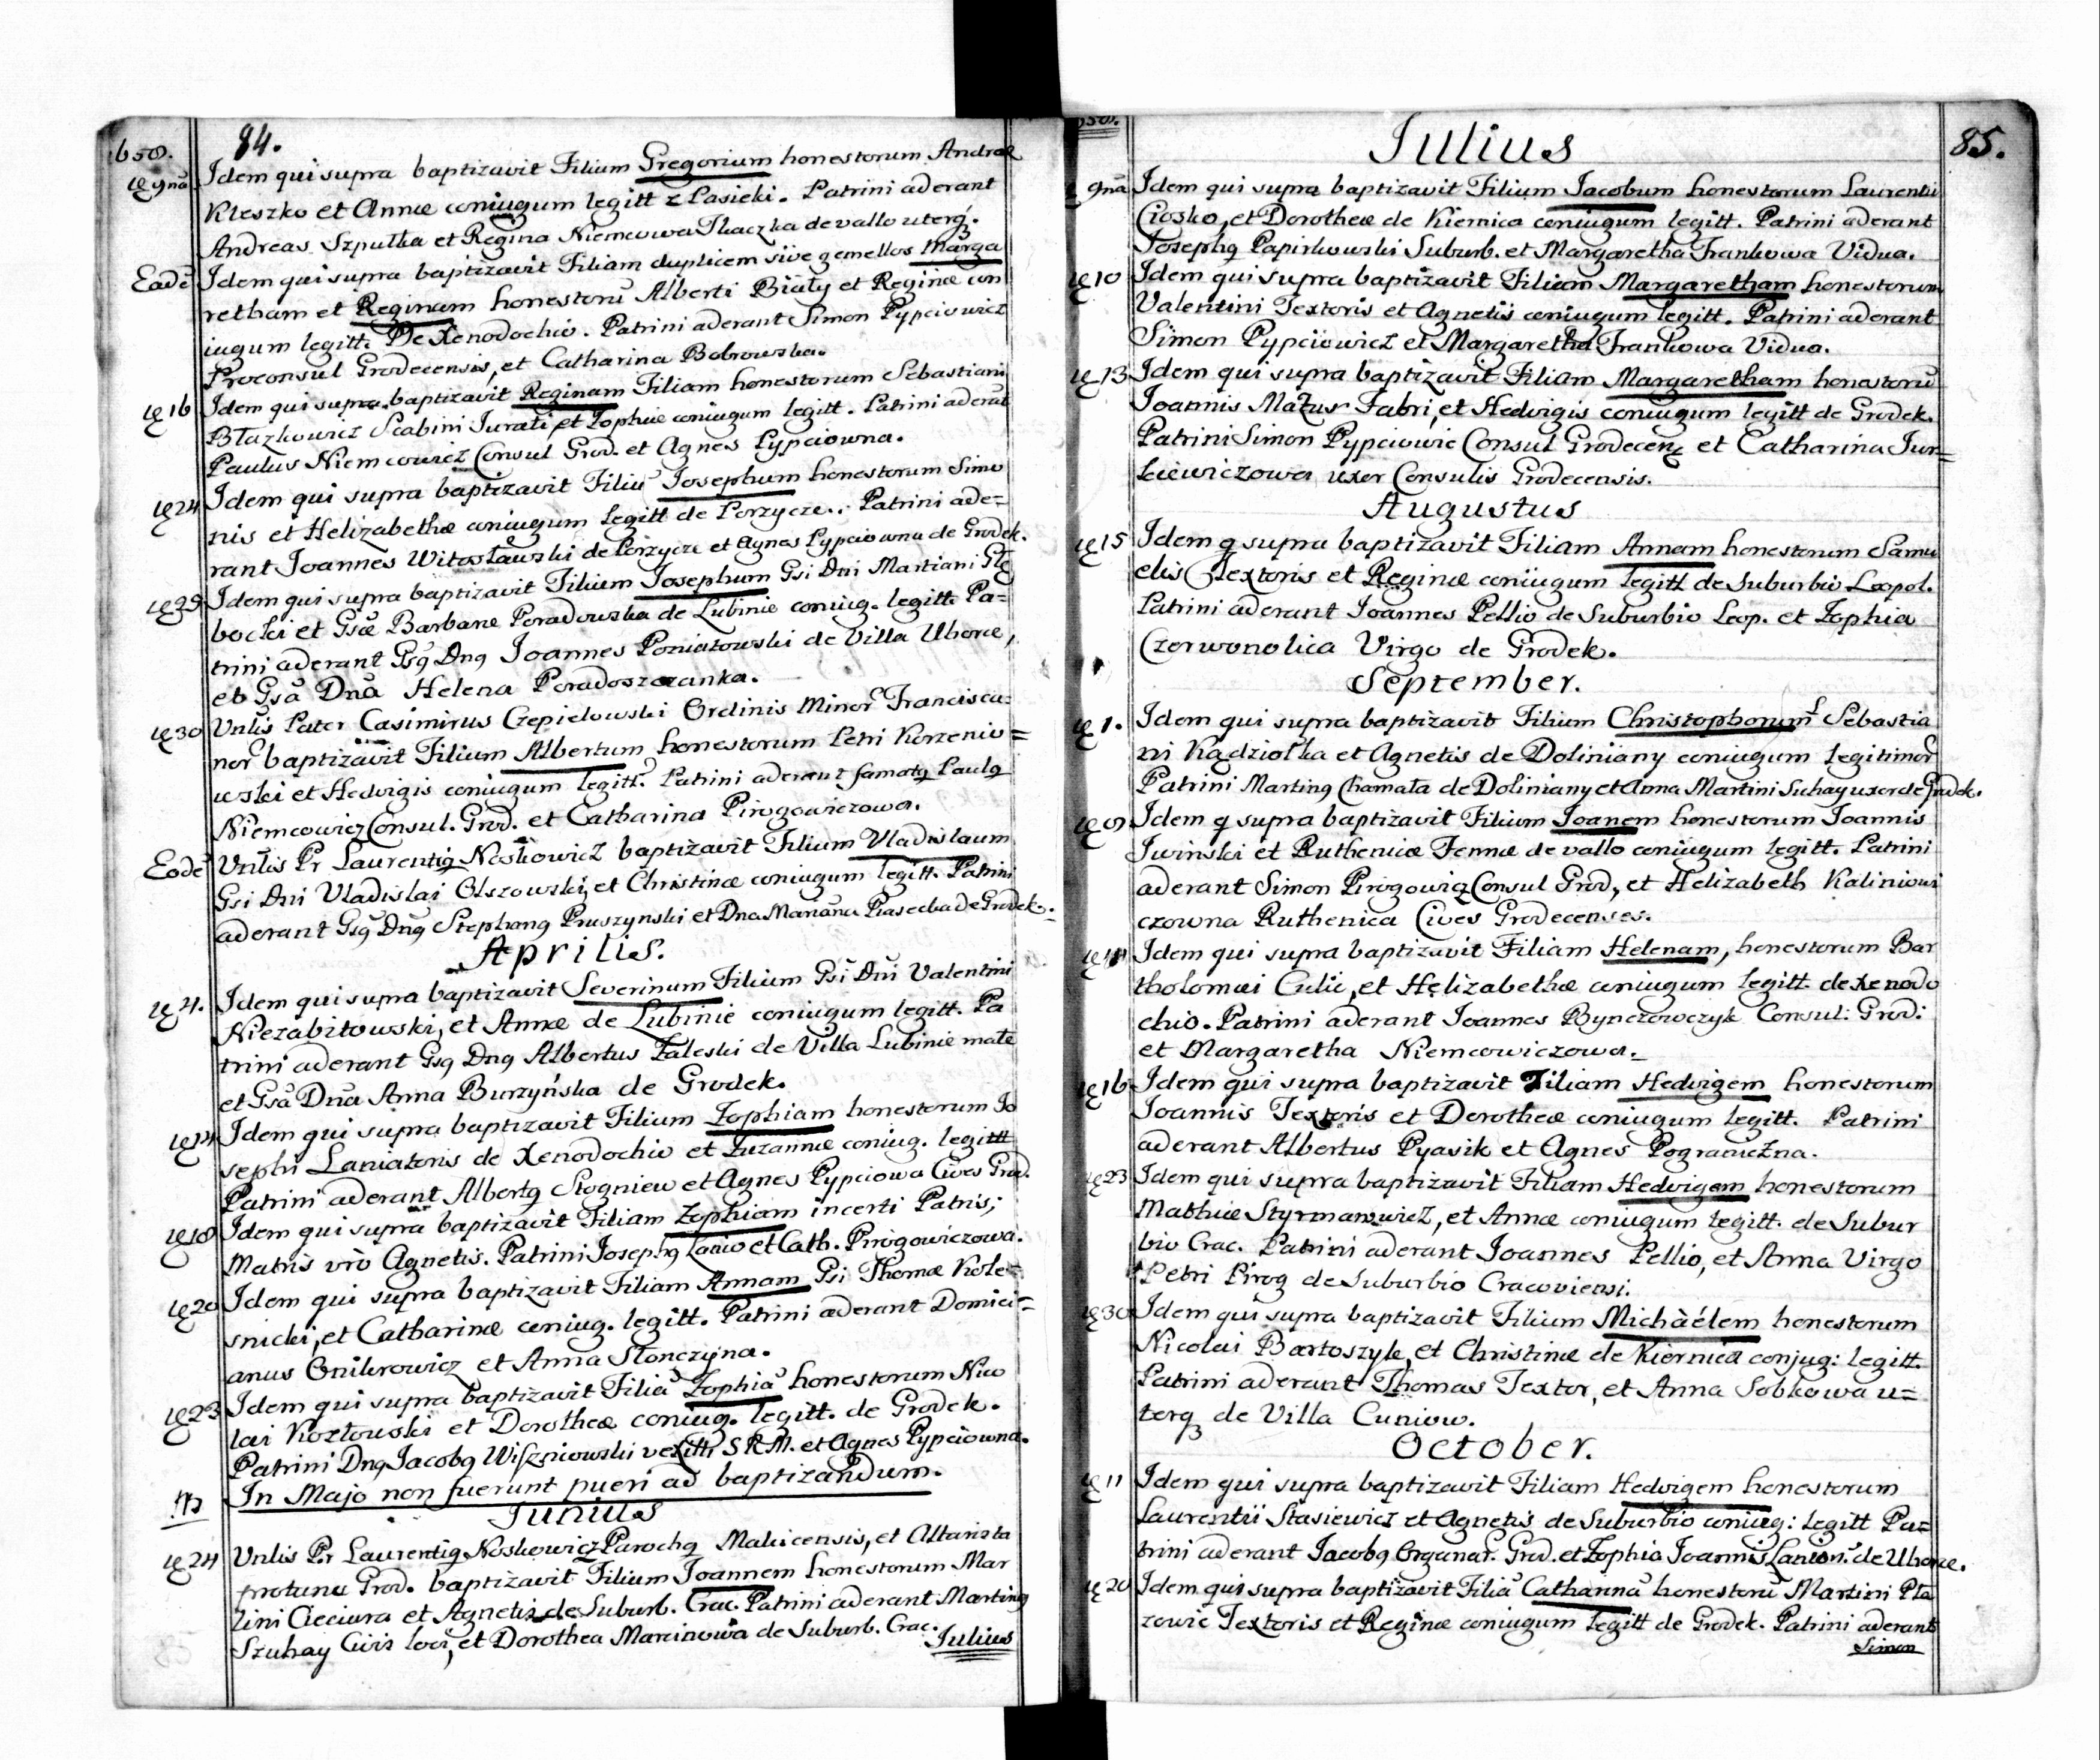 1658.
84.
Idem qui supra baptizavit Filium Gregorium honestorum Andreæ
Kleszko et Annæ coniugum legitt z Pasieki. Patrini aderant
Andreas Szpulka et Regina Niemcowa Tkaczka de vallo uterq.
Eadē Idem qui supra baptizavit Filiam duplicem sive gemellos Marga
retham et Reginam honestorū Alberti Biały et Reginæ con
iugum legitt. De Xenodochio. Patrini aderant Simon Pypciowicz
Proconsul Grodecensis, et Catharina Bobrowska.
16 Idem qui supra baptizavit Reginam Filiam honestorum Sebastiani
Błazkowicz Scabini Iurati et Zophiæ coniugum legitt. Patrini aderāt
Paulus Niemcowicz Consul Grod. et Agnes Pypciowna.
24 Idem qui supra baptizavit Filiū Iosephum honestorum Simo
nis et Helizabethæ coniugum legitt de Porzycze. Patrini ade=
rant Joannes Witosławski de Porzycze et Agnes Pypciowna de Grodek.
29 Idem qui supra baptizavit Filium Iosephum Gsi Dni Martiani Głę
bocki et Gsæ Barbaræ Poradowska de Lubinie coniug. legitt. Pa=
trini aderant Gsq Dnq Joannes Poniatowski de Villa Uherce,
et Gsā Dnā Helena Poradoszczanka.
30 Vnlis Pater Casimirus Czepielowski Ordinis Minor Francisca=
nor baptizavit Filium Albertum honestorum Petri Korzenio=
wski et Hedvigis coniugum legitt. Patrini aderant famatq Paulq
Niemcowicz Consul. Grod. et Catharina Pirogowiczowa.
Eodē Vnlis Pr Laurentiq Noskowicz baptizavit Filium Vladislaum
Gsi Dni Vladislai Olszowski, et Christinæ coniugum legitt. Patrini
aderant Gsq Dnq Stephanq Pruszynski et Dna Mariāna Piasecka de Grodek.
Aprilis.
4. Idem qui supra baptizavit Severinum Filium Gsi Dni Valentini
Niezabitowski, et Annæ de Lubinie coniugum legitt. Pa
trini aderant Gsq Dnq Albertus Zaleski de Villa Lubinie małe
et Gsā Dnā Anna Burzyńska de Grodek.
14 Idem qui supra baptizavit Filium Zophiam honestorum Io
sephi Laniatoris de Xenodochio et Zuzannæ coniug. legitt
Patrini aderant Albertq Stogniew et Agnes Pypciowa Cives Grod.
18 Idem qui supra baptizavit Filiam Zophiam incerti Patris,
Matris vrò Agnetis. Patrini Josephq Lanio et Cath. Pirogowiczowa.
20 Idem qui supra baptizavit Filiam Annam Gsi Thomæ Kole=
snicki, et Catharinæ coniug. legitt. Patrini aderant Domici=
anus Onikrowicz et Anna Słonczyna.
23 Idem qui supra baptizavit Filiā Zophiā honestorum Nico
lai Kozłowski et Dorotheæ coniug. legitt. de Grodek.
Patrini Dnq Jacobq Wiszniowski vexilli S.R.M. et Agnes Pypciowna.
In Majo non fuerunt pueri ad baptizandum.
Iunius
24 Vnlis Pr Laurentiq Noskowicz Parochq Malicensis, et Altarista
protunc Grod. baptizavit Filium Joannem honestorum Mar
tini Cieciura et Agnetis de Suburb. Crac. Patrini aderant Martinq
Szuhay Civis loci, et Dorothea Marcinowa de Suburb. Crac.
Iulius
85.
Iulius
9nā Idem qui supra baptizavit Filium Jacobum honestorum Laurentii
Ciosko, et Dorotheæ de Kiernica coniugum legitt. Patrini aderant
Josephq Papirkowski Suburb. et Margaretha Frankowa Vidua.
10 Idem qui supra baptizavit Filiam Margaretham honestorum
Valentini Textoris et Agnetis coniugum legitt. Patrini aderant
Simon Pypciowicz et Margaretha Frankowa Vidua.
13 Idem qui supra baptizavit Filiam Margaretham honestorū
Joannis Mazur Fabri, et Hedvigis coniugum legitt de Grodek.
Patrini Simon Pypciowic Consul Grodecen et Catharina Jur=
kiewiczowa uxor Consulis Grodecensis.
Augustus
15 Idem q supra baptizavit Filiam Annam honestorum Samu
elis Textoris et Reginæ coniugum legitt de Suburbio Leopol.
Patrini aderant Joannes Pellio de Suburbio Leop. et Zophia
Czerwonolica Virgo de Grodek.
September.
1. Idem qui supra baptizavit Filium Christophorum Sebastia
ni Kądziołka et Agnetis de Doliniany coniugum legitimor
Patrini Martinq Chamała de Doliniany et Anna Martini Suhay uxor de Grodek.
9 Idem q supra baptizavit Filium Joanem honestorum Joannis
Iwinski et Rutheniæ Fennæ de vallo coniugum legitt. Patrini
aderant Simon Pirogowicz Consul Grod, et Helizabeth Kaliniowi
czowna Ruthenica Cives Grodecenses.
Idem qui supra baptizavit Filiam Helenam, honestorum Bar
tholomæi Culic, et Helizabethæ coniugum legitt. de Xenodo
chio. Patrini aderant Joannes Bynczowczyk Consul: Grod:
et Margaretha Niemcowiczowa.
16 Idem qui supra baptizavit Filiam Hedvigem honestorum
Joannis Textoris et Dorotheæ coniugum legitt. Patrini
aderant Albertus Pyasik et Agnes Pograniczna.
23 Idem qui supra baptizavit Filiam Hedvigem honestorum
Mathiæ Styrmanowicz, et Annæ coniugum legitt. de Subur
bio Crac. Patrini aderant Joannes Pellio, et Anna Virgo
Petri Pirog de Suburbio Cracoviensi.
30 Idem qui supra baptizavit Filium Michàélem honestorum
Nicolai Bartoszyk, et Christinæ de Kiernica conjug: legitt.
Patrini aderant Thomas Textor, et Anna Sobkowa u=
terq de Villa Cuniow.
October.
11 Idem qui supra baptizavit Filiam Hedvigem honestorum
Laurentii Stasiewicz et Agnetis de Suburbio coniug: legitt Pa=
trini aderant Jacobq Organar. Grod. et Zophia Joannis Lanion. de Uherce.
20 Idem qui supra baptizavit Filiā Catharinā honestorū Martini Pta
zowic Textoris et Reginæ coniugum legitt de Grodek. Patrini aderant
Simon